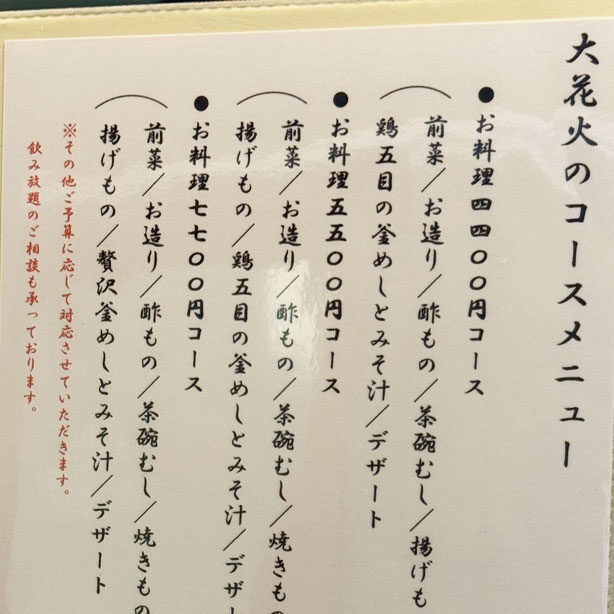 大花火のコースメニュー
●お料理四四〇〇円コース
（前菜／お造り／酢もの／茶碗むし／揚げも
鶏五目の釜めしとみそ汁／デザート
●お料理五五〇〇円コース
（前菜／お造り／酢もの／茶碗むし／焼きもの
揚げもの／鶏五目の釜めしとみそ汁／デザー
●お料理七七〇〇円コース
（前菜／お造り／酢もの／茶碗むし／焼きもの
揚げもの／贅沢釜めしとみそ汁／デザート
※その他ご予算に応じて対応させていただきます。
飲み放題のご相談も承っております。